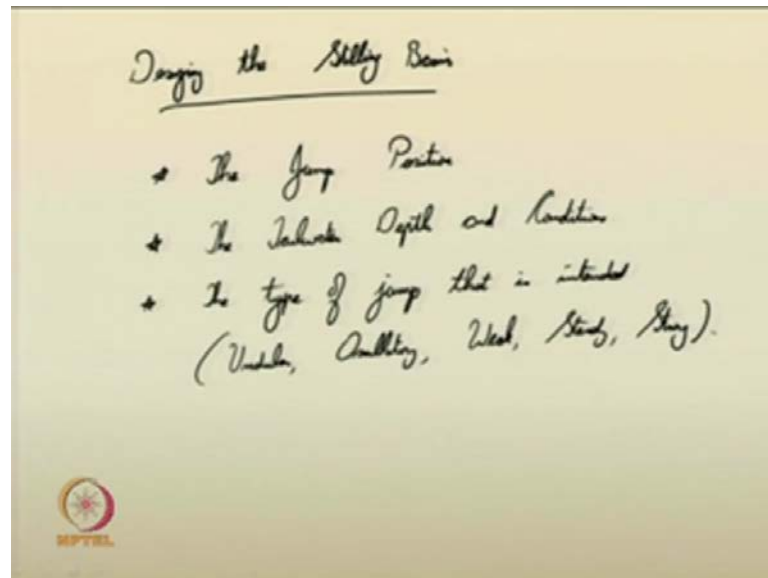 Desging the Stilling Basin
* The Jump Position
* The Tailwater Depth and Conditions
* The type of jump that is intended
(Undular, Oscillating, Weak, Steady, Strong).
NPTEL